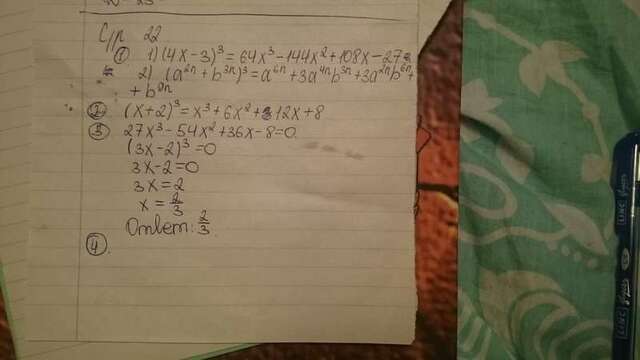 С/р 22
① 1) (4x-3)³ = 64x³ - 144x² + 108x - 27
2) (a²ⁿ + b³ⁿ)³ = a⁶ⁿ + 3a⁴ⁿb³ⁿ + 3a²ⁿb⁶ⁿ +
+ b⁹ⁿ
② (x+2)³ = x³ + 6x² + 12x + 8
③ 27x³ - 54x² + 36x - 8 = 0
(3x-2)³ = 0
3x - 2 = 0
3x = 2
x = 2/3
Ответ: 2/3
④
LINC
LINC